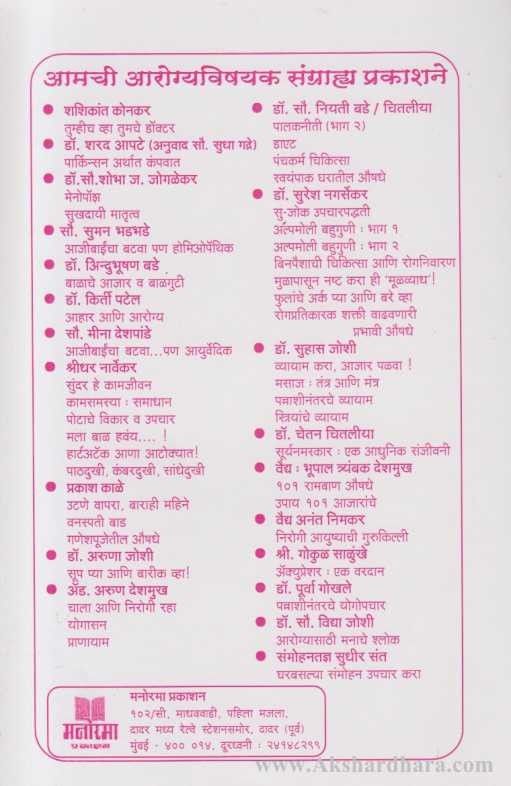 आमची आरोग्यविषयक संग्राह्य प्रकाशने
● शशिकांत कोनकर
तुम्हीच व्हा तुमचे डॉक्टर
● डॉ. शरद आपटे (अनुवाद सौ. सुधा गद्रे)
पार्किन्सन अर्थात कंपवात
● डॉ.सौ.शोभा ज. जोगळेकर
मेनोपॉझ
सुखदायी मातृत्व
● सौ. सुमन भडभडे
आजीबाईंचा बटवा पण होमिओपॅथिक
● डॉ. अिन्दुभूषण बडे
बाळाचे आजार व बाळगुटी
● डॉ. किर्ती पटेल
आहार आणि आरोग्य
● सौ. मीना देशपांडे
आजीबाईंचा बटवा...पण आयुर्वेदिक
● श्रीधर नार्वेकर
सुंदर हे कामजीवन
कामसमस्या : समाधान
पोटाचे विकार व उपचार
मला बाळ हवंय.... !
हार्टअटॅक आणा आटोक्यात!
पाठदुखी, कंबरदुखी, सांधेदुखी
● प्रकाश काळे
उटणे वापरा, बाराही महिने
वनस्पती बाड
गणेशपूजेतील औषधे
● डॉ. अरुणा जोशी
सूप प्या आणि बारीक व्हा!
● अ‍ॅड. अरुण देशमुख
चाला आणि निरोगी रहा
योगासन
प्राणायाम
● डॉ. सौ. नियती बडे / चितलीया
पालकनीती (भाग २)
डाएट
पंचकर्म चिकित्सा
स्वयंपाक घरातील औषधे
● डॉ. सुरेश नगर्सेकर
सु-जोक उपचारपद्धती
अल्पमोली बहुगुणी : भाग १
अल्पमोली बहुगुणी : भाग २
बिनपैशाची चिकित्सा आणि रोगनिवारण
मुळापासून नष्ट करा ही 'मूळव्याध'!
फुलांचे अर्क प्या आणि बरे व्हा
रोगप्रतिकारक शक्ती वाढवणारी
प्रभावी औषधे
● डॉ. सुहास जोशी
व्यायाम करा, आजार पळवा !
मसाज : तंत्र आणि मंत्र
पन्नाशीनंतरचे व्यायाम
स्त्रियांचे व्यायाम
● डॉ. चेतन चितलीया
सूर्यनमस्कार : एक आधुनिक संजीवनी
● वैद्य : भूपाल त्र्यंबक देशमुख
१०१ रामबाण औषधे
उपाय १०१ आजारांचे
● वैद्य अनंत निमकर
निरोगी आयुष्याची गुरुकिल्ली
● श्री. गोकुळ साळुंखे
अ‍ॅक्युप्रेशर : एक वरदान
● डॉ. पूर्वा गोखले
पन्नाशीनंतरचे योगोपचार
● डॉ. सौ. विद्या जोशी
आरोग्यासाठी मनाचे श्लोक
● संमोहनतज्ञ सुधीर संत
घरबसल्या संमोहन उपचार करा
मनोरमा
प्रकाशन
मनोरमा प्रकाशन
१०२/सी, माधववाडी, पहिला मजला,
दादर मध्य रेल्वे स्टेशनसमोर, दादर (पूर्व)
मुंबई - ४०० ०१४. दूरध्वनी : २४१४८२९९
www.Akshardhara.com